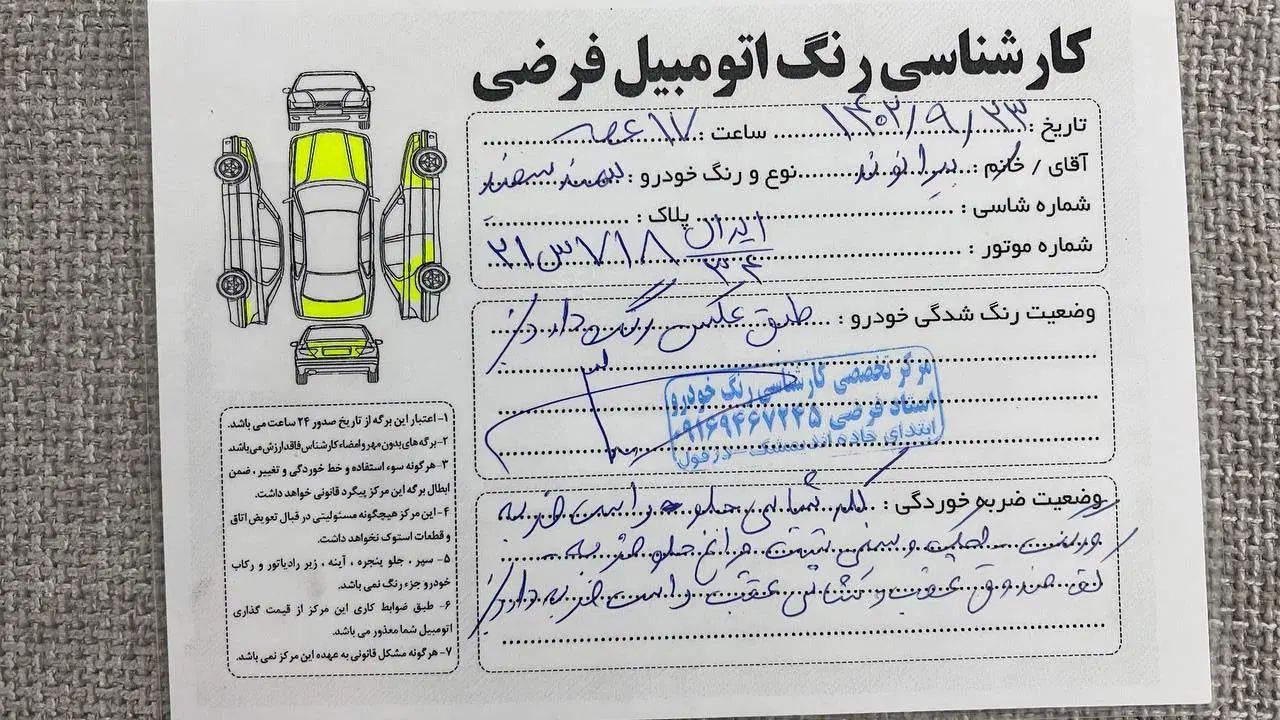 کارشناسی رنگ اتومبیل فرضی
تاریخ : ۱۴۰۲/۹/۲۳ ساعت : ۱۷ عصر
آقای / خانم : بیرانوند نوع و رنگ خودرو : سمند سفید
شماره شاسی : پلاک :
شماره موتور : ایران ۳۴ ۷۱۸ س ۲۱
وضعیت رنگ شدگی خودرو : طبق عکس رنگ دارد
مرکز تخصصی کارشناسی رنگ خودرو
استاد فرضی ۰۹۱۶۹۴۶۷۲۴۵
ابتدای جاده اندیمشک - دزفول
وضعیت ضربه خوردگی : گلد شاسی جلو راست ضربه
و سینی پشت چراغ جلو ضربه
کف صندوق عقب و شاسی عقب راست ضربه دارد
۱- اعتبار این برگه از تاریخ صدور ۲۴ ساعت می باشد.
۲- برگه های بدون مهر و امضاء کارشناس فاقد ارزش می باشد.
۳- هرگونه سوء استفاده و خط خوردگی و تغییر ، ضمن
ابطال برگه این مرکز پیگرد قانونی خواهد داشت.
۴- این مرکز هیچگونه مسئولیتی در قبال تعویض اتاق
و قطعات استوک نخواهد داشت.
۵- سپر ، جلو پنجره ، آینه ، زیر رادیاتور و رکاب
خودرو جزء رنگ نمی باشد.
۶- طبق ضوابط کاری این مرکز از قیمت گذاری
اتومبیل شما معذور می باشد.
۷- هرگونه مشکل قانونی به عهده این مرکز نمی باشد.